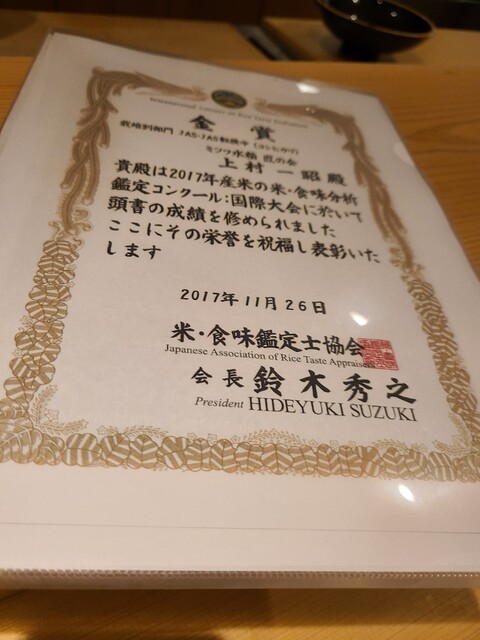 金賞
栽培別部門 JAS・JAS転換中（コシヒカリ）
ミツワ水稲 匠の会
上村一昭殿
貴殿は2017年産米の米・食味分析
鑑定コンクール：国際大会に於いて
頭書の成績を修められました
ここにその栄誉を祝福し表彰いた
します
2017年11月26日
米・食味鑑定士協会
Japanese Association of Rice Taste Appraisers
会長 鈴木秀之
President HIDEYUKI SUZUKI